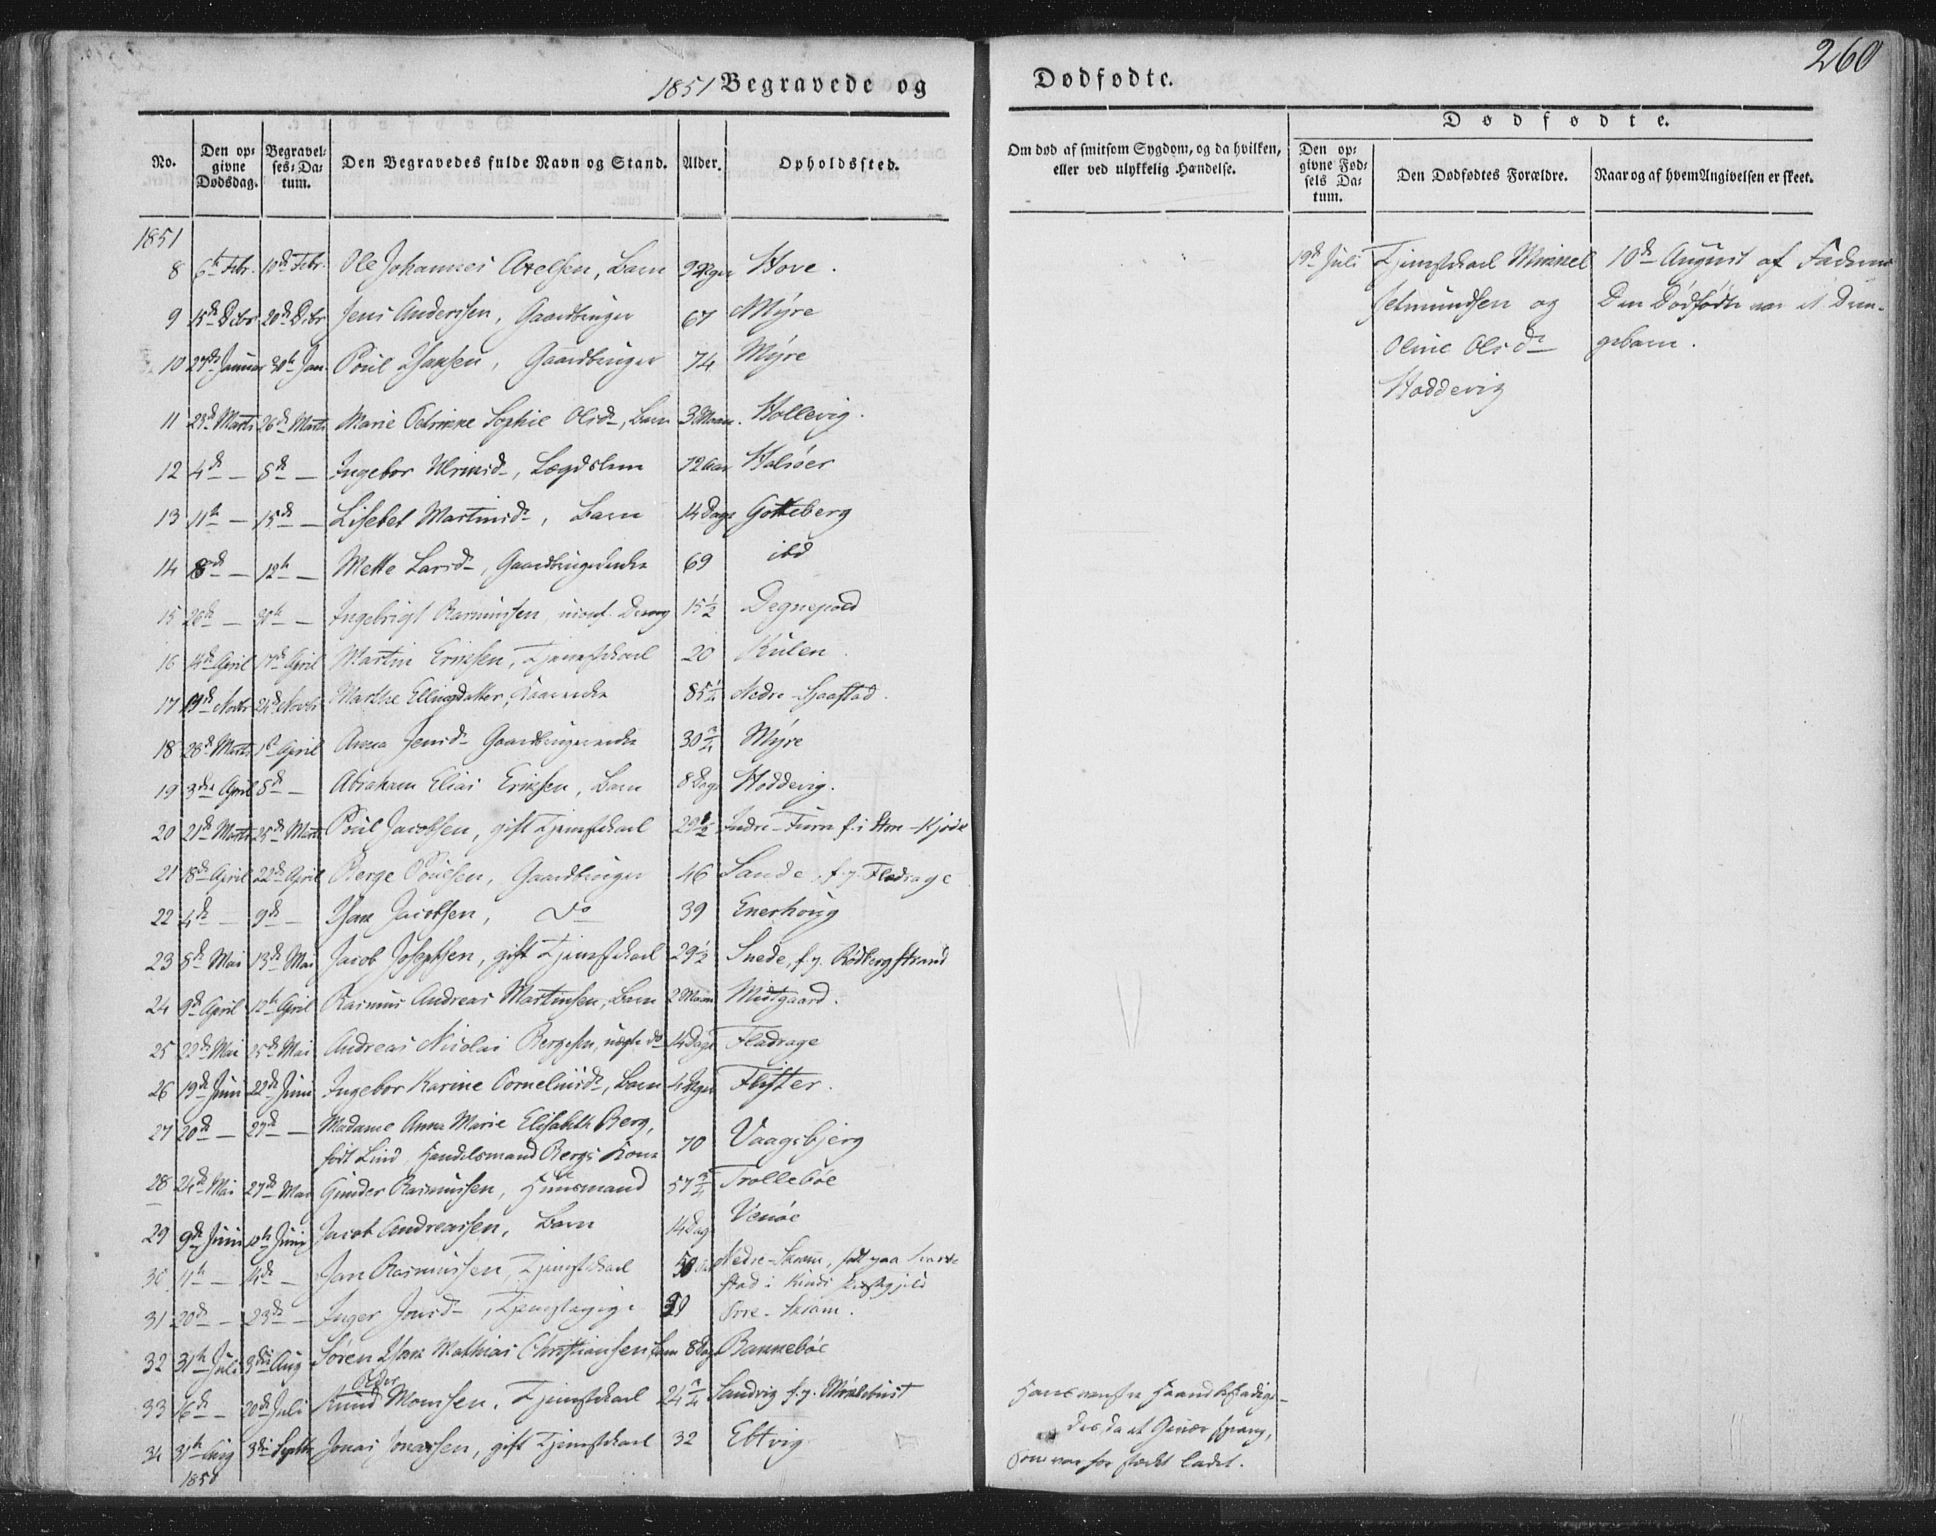 260
1851 Begravede og Dødfødte.
No. Den opgivne Dødsdag. Begravelses-Datum. Den Begravedes fulde Navn og Stand. Alder. Opholdssted.
Om død af smitsom Sygdom, og da hvilken, eller ved ulykkelig Hændelse.
Dødfødte.
Den opgivne Fødsels Datum. Den Dødfødtes Forældre. Naar og af hvem Angivelsen er skeet.
1851
8 6te Febr. 10de Febr. Ole Johannes Axelsen, Barn Hove.
9 15de Dcbr 20de Dcbr Jens Anderssen, Gaardbruger 67 Myre
10 27de Januar 30te Jan. Poul Isaksen, Gaardbruger 74 Myre
11 23de Marts 26de Marts Marie Petrikke Sophie Olsdr, Barn 3 Maan. Hollevig.
12 4de — 8de — Ingebor Ulriksdr, Lægdslem 72 Aar Halsøer
13 11te — 15de — Lisebet Martinsdr, Barn 14 Dage Gotteberg
14 8de — 12te — Mette Larsdr, Gaardbrugerenke 69 ibd
15 26te — 30te — Ingebrigt Rasmussen, uconf. Dreng 15½ Degnepold
16 14de April 17de April Martin Eriksen, Tjenestekarl 20 Kulen.
17 19de Novbr 24de Novbr Marthe Ellingsdatter, 85¼ Nedre-
18 28de Marts 1ste April Anna Jensdr Gaardbrugerenke 30¾ Myre
19 3die April 8de — Abraham Elias Eriksen, Barn 8 Dage Hoddevig.
20 21de Marts 25de Marts Poul Jacobsen, gift Tjenestekarl 29½ Indre-
21 18de April 22de April Berge Poulsen, Gaardbruger 46 Sande, f. p. Fladrage
22 4de — 9de — Isak Jacobsen, do 39 Enerhoug
23 8de Mai 13de Mai Jacob Josephsen, gift Tjenestekarl 29½ Snede, f. p. Rødbergstrand
24 9de April 12te April Rasmus Andreas Martinsen, Barn 2 Maan Midtgaard.
25 22de Mai 25de Mai Andreas Nicolai Bergesen, uægte do 14 Dage Fladrage
26 19de Juni 22de Juni Ingebor Karine Corneliusdr, Barn 4 Uger Flister.
27 20de — 27de — Madame Anna Marie Elisabeth Berg,
født Lind, Handelsmand Bergs Kone 70 Vaagsbjerg
28 24de Mai 27de Mai Gunder Rasmussen, Huusmand 57¾ Trollebøe
29 9de Juni 12te Juni Jacob Andreassen, Barn 14 Dag Venøe
30 4de — Jan Rasmussen, Tjenestekarl 50 Nedre-Skram, født paa
stad i Kinds Præstegjeld
31 20de — 23de — Inger Jonsdr, Tjenestepige Øvre-Skram.
32 31te Juli 3die Aug Søren Isak Mathias Christiansen Barn 8 Dage Bakkebøe
33 16de — 20de Juli Peder Knud Monssen, Tjenestekarl 24¾ Sandvig f. p. Maalebust
34 31te Aug 3die Septbr Jonas Jonassen, gift Tjenestekarl 32 Eltvig
1850
19de Juli Tjenestekarl Mikkel
Selmundsen og
Oline Olsdr
Hoddevig
10de August af Faderen
Den Dødfødte var et Dren-
gebarn.
Hans venstre Haand beskadige-
des, da et Gevær sprang,
som var for stærkt ladet.